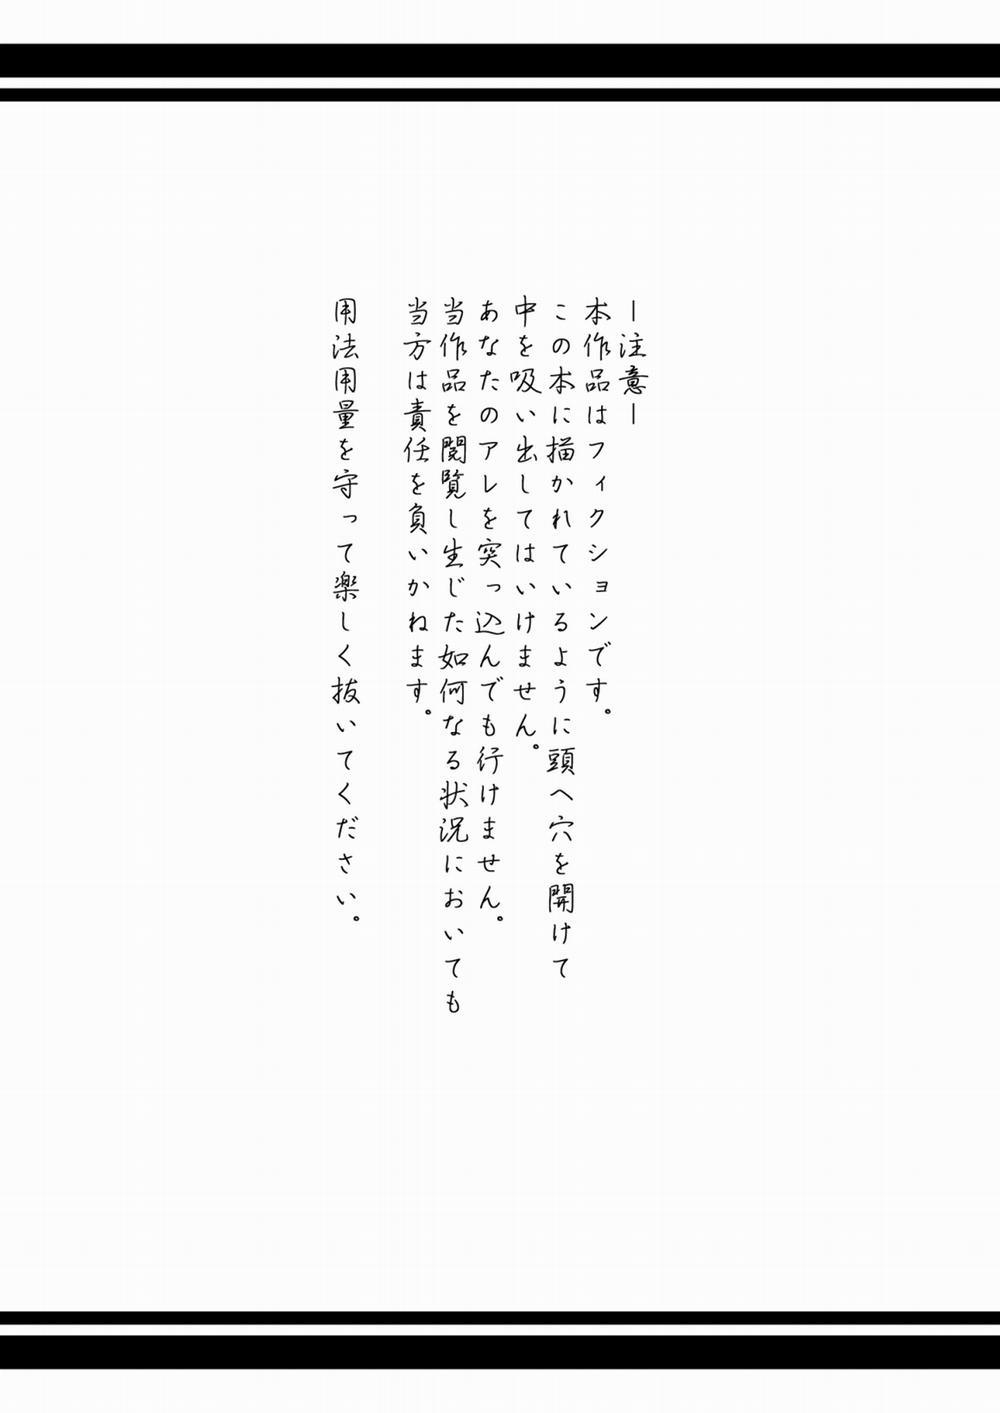 －注意－
本作品はフィクションです。
この本に描かれているように頭へ穴を開けて
中を吸い出してはいけません。
あなたのアレを突っ込んでも行けません。
当作品を閲覧し生じた如何なる状況においても
当方は責任を負いかねます。
用法用量を守って楽しく抜いてください。